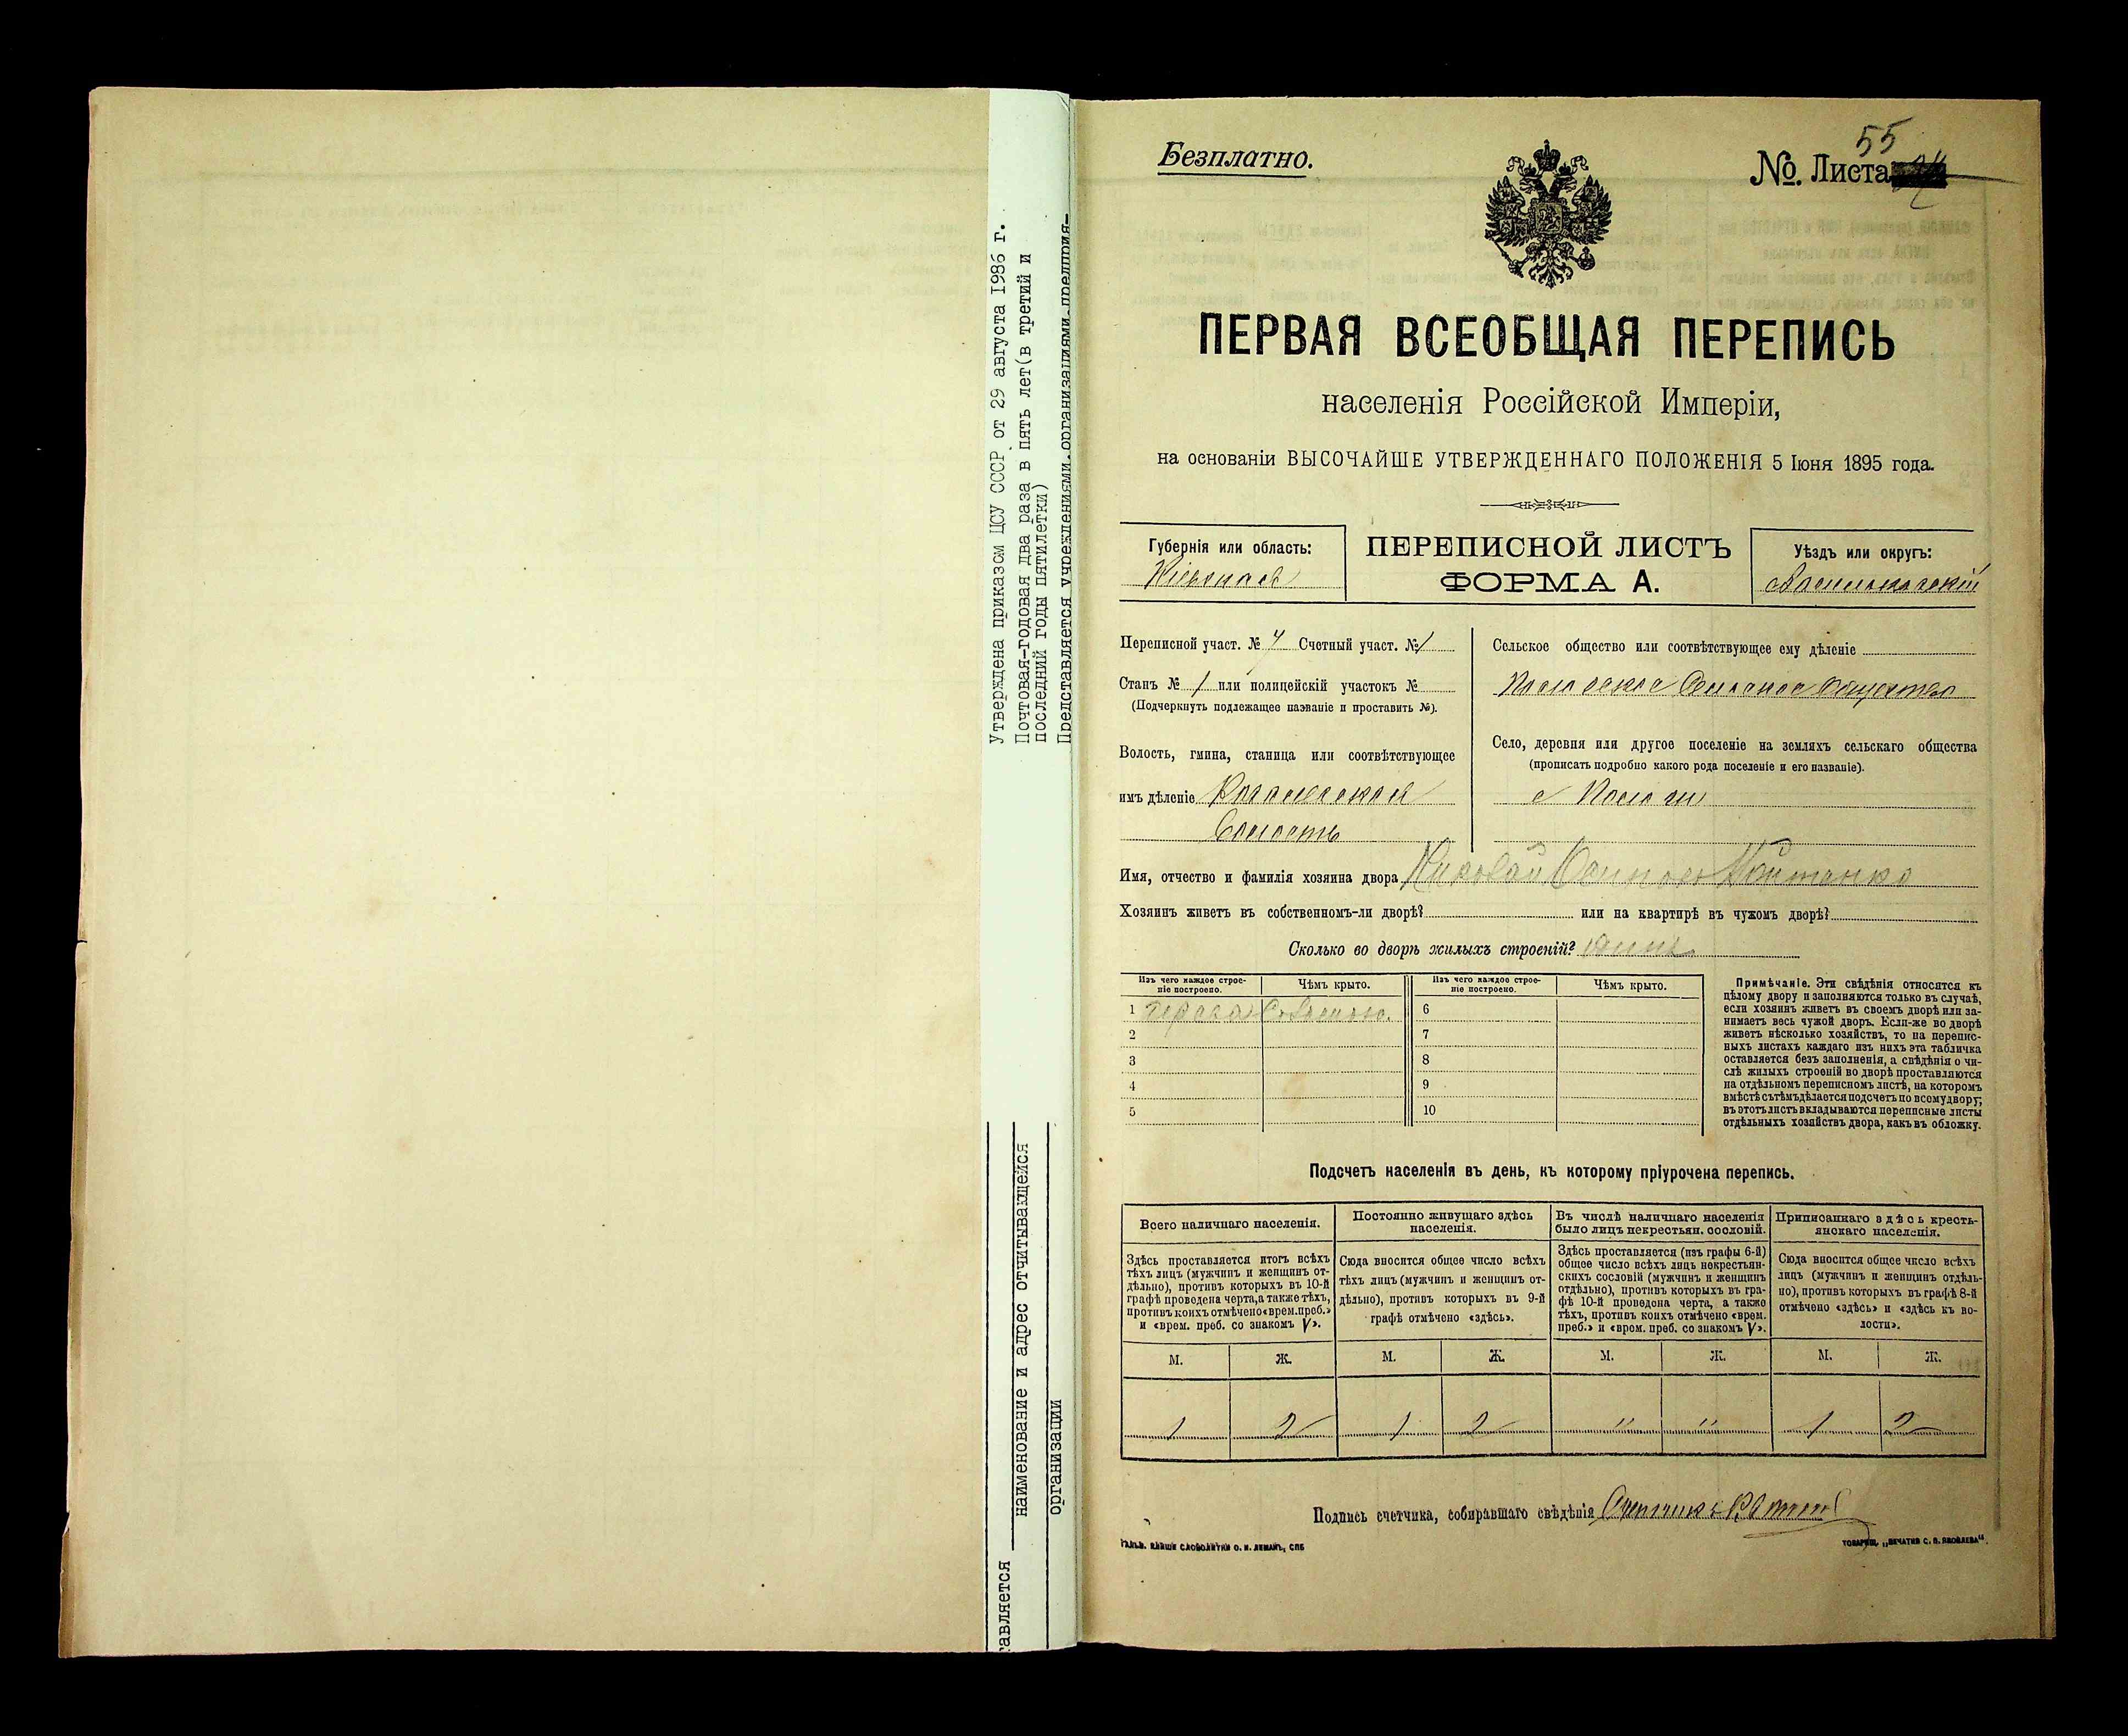 Утверждена приказом ЦСУ СССР от 29 августа 1986 г.
Почтовая-годовая два раза в пять лет(в третий и
последний годы пятилетки)
Представляется учреждениями,организациями,предприя-
тавляется
наименование и адрес отчитывающейся
организации
Безплатно.
№. Листа 55
ПЕРВАЯ ВСЕОБЩАЯ ПЕРЕПИСЬ
населенія Россійской Имперіи,
на основаніи ВЫСОЧАЙШЕ УТВЕРЖДЕННАГО ПОЛОЖЕНІЯ 5 Іюня 1895 года.
Губернія или область:
Кіевская
ПЕРЕПИСНОЙ ЛИСТЪ
ФОРМА А.
Уѣздъ или округъ:
Васильковскій
Переписной участ. № 4 Счетный участ. № 1
Станъ № 1 или полицейскій участокъ №
(Подчеркнуть подлежащее названіе и проставить №).
Волость, гмина, станица или соотвѣтствующее
имъ дѣленіе
Волость
Сельское общество или соотвѣтствующее ему дѣленіе
Сельское Общество
Село, деревня или другое поселеніе на земляхъ сельскаго общества
(прописать подробно какого рода поселеніе и его названіе).
с
Имя, отчество и фамилія хозяина двора Николай
Хозяинъ живетъ въ собственномъ-ли дворѣ? или на квартирѣ въ чужомъ дворѣ?
Сколько во дворѣ жилыхъ строеній? Одинъ
Изъ чего каждое строе-
ніе построено.
Чѣмъ крыто.
Изъ чего каждое строе-
ніе построено.
Чѣмъ крыто.
1 Соломою.
2
3
4
5
6
7
8
9
10
Примѣчаніе. Эти свѣдѣнія относятся къ
цѣлому двору и заполняются только въ случаѣ,
если хозяинъ живетъ въ своемъ дворѣ или за-
нимаетъ весь чужой дворъ. Если-же во дворѣ
живетъ нѣсколько хозяйствъ, то на перепис-
ныхъ листахъ каждаго изъ нихъ эта табличка
оставляется безъ заполненія, а свѣдѣнія о чи-
слѣ жилыхъ строеній во дворѣ проставляются
на отдѣльномъ переписномъ листѣ, на которомъ
вмѣстѣ съ тѣмъ дѣлается подсчетъ по всему двору;
въ этотъ листъ вкладываются переписные листы
отдѣльныхъ хозяйствъ двора, какъ въ обложку.
Подсчетъ населенія въ день, къ которому пріурочена перепись.
Всего наличнаго населенія.
Здѣсь проставляется итогъ всѣхъ
тѣхъ лицъ (мужчинъ и женщинъ от-
дѣльно), противъ которыхъ въ 10-й
графѣ проведена черта, а также тѣхъ,
противъ коихъ отмѣчено «врем. преб.»
и «врем. преб. со знакомъ V».
Постоянно живущаго здѣсь
населенія.
Сюда вносится общее число всѣхъ
тѣхъ лицъ (мужчинъ и женщинъ от-
дѣльно), противъ которыхъ въ 9-й
графѣ отмѣчено «здѣсь».
Въ числѣ наличнаго населенія
было лицъ некрестьян. сословій.
Здѣсь проставляется (изъ графы 6-й)
общее число всѣхъ лицъ некрестьян-
скихъ сословій (мужчинъ и женщинъ
отдѣльно), противъ которыхъ въ гра-
фѣ 10-й проведена черта, а также
тѣхъ, противъ коихъ отмѣчено «врем.
преб.» и «врем. преб. со знакомъ V».
Приписаннаго здѣсь кресть-
янскаго населенія.
Сюда вносится общее число всѣхъ
лицъ (мужчинъ и женщинъ отдѣль-
но), противъ которыхъ въ графѣ 8-й
отмѣчено «здѣсь» и «здѣсь къ во-
лости».
М. Ж. М. Ж. М. Ж. М. Ж.
1 2 1 2 " " 1 2
Подпись счетчика, собиравшаго свѣдѣнія Счетчикъ
СЛОВОЛИТНИ О. И. ЛЕМАНЪ, СПБ
ТОВАРИЩ. „ПЕЧАТНЯ С. П. ЯКОВЛЕВА".